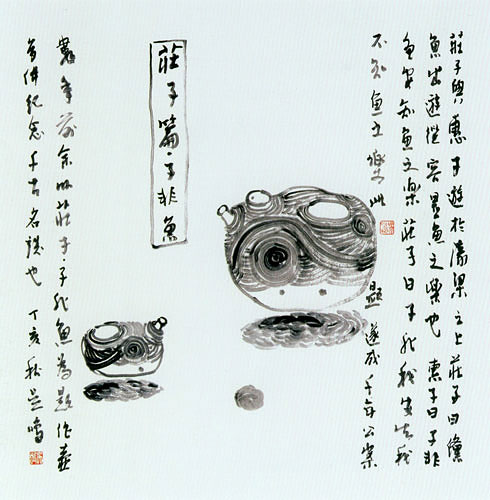 莊子與惠子遊於濠梁之上莊子曰儵
魚出遊從容是魚之樂也惠子曰子非
魚安知魚之樂莊子曰子非我安知我
不知魚之樂此題遂成千年公案
莊子篇·子非魚
年前余以莊子·子非魚為題作壺
多件紀念千古名也丁亥秋吳鳴